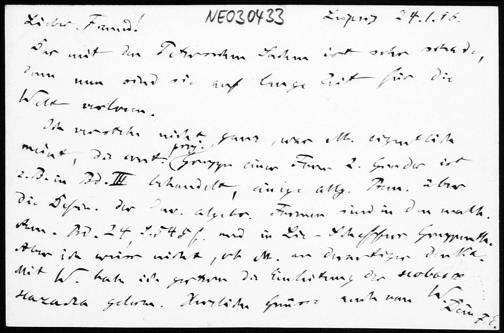 NEO30433
Leipzig 24.1.16.
Lieber Freund!
Das mit den Sachen ist sehr schade,
denn nun sind sie auf lange Zeit für die
Welt verloren.
Ich verstehe nicht ganz, was M. eigentlich
meint, die Gruppe einer Form 2. Grades ist
z.B. in Bd. III behandelt, einige allg. Bem. über
die der algebr. Formen sind in den math.
Ann. Bd. 24, S. und in Lie-Scheffers
Aber ich weiss nicht, ob M. an derartiges denkt.
Mit W. habe ich gestern die Einleitung der
gelesen. Herzliche Grüsse auch von W.
Dein F. E.